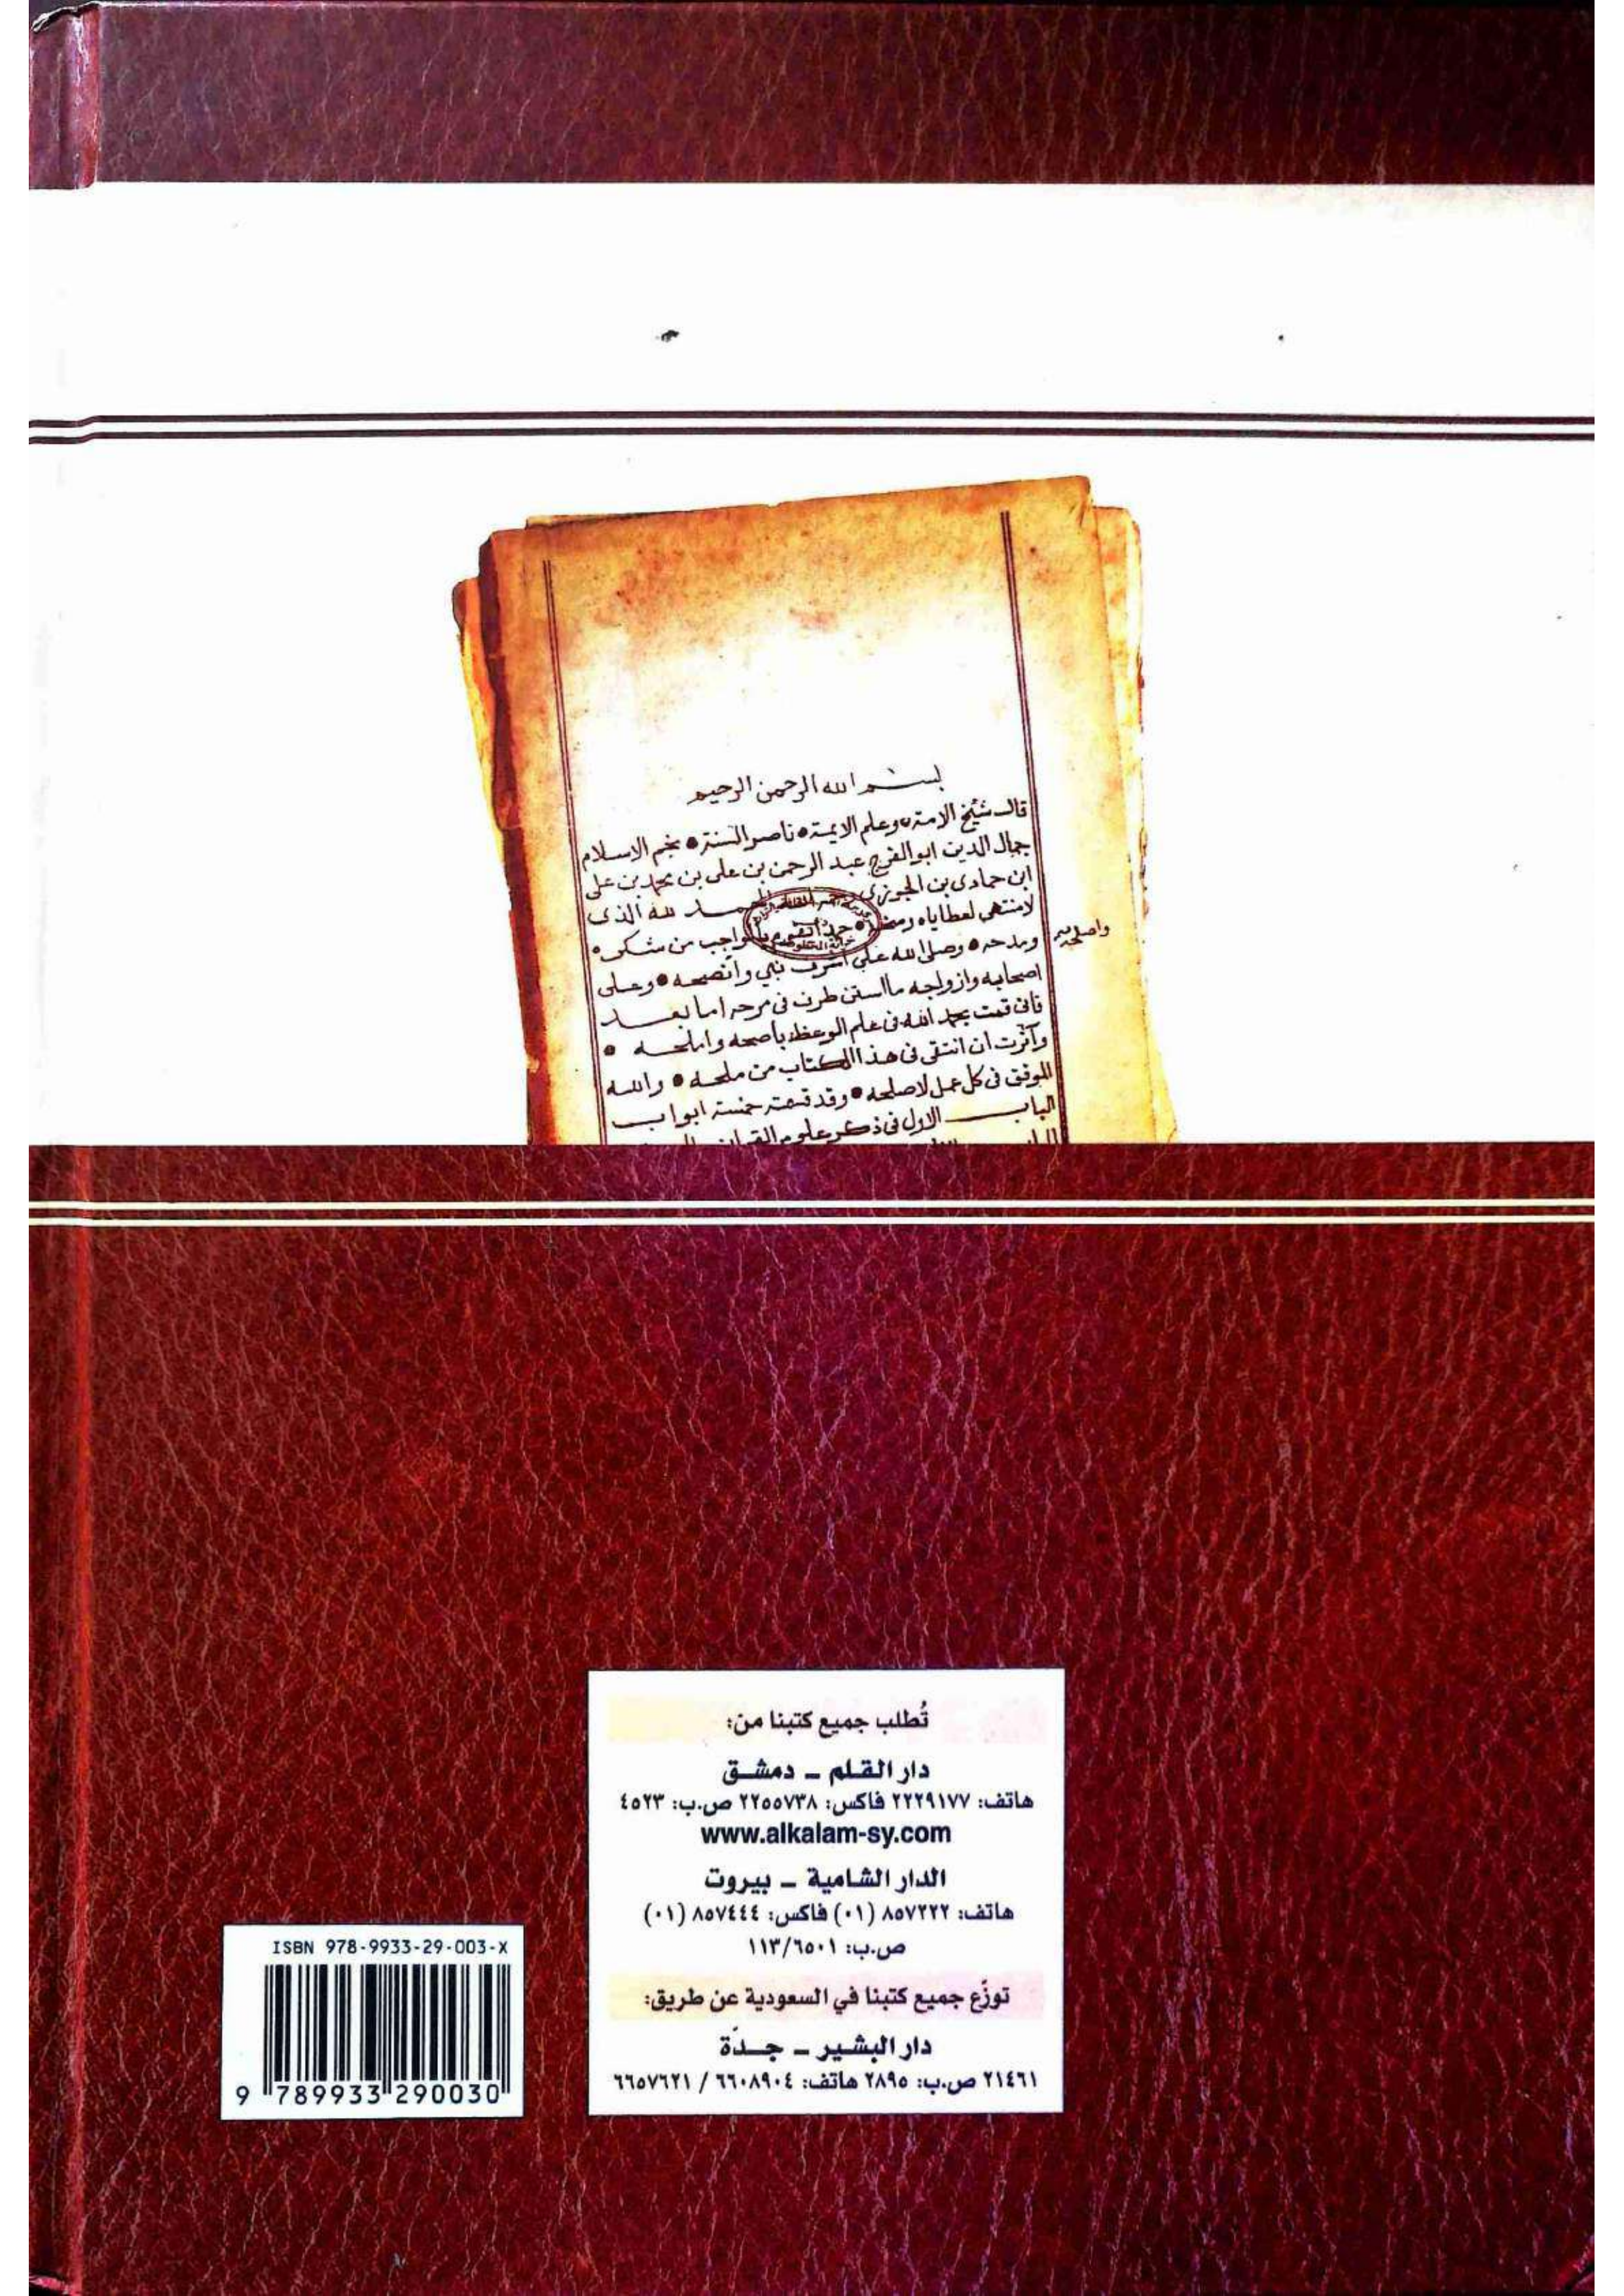 بسم الله الرحمن الرحيم
قال شيخ الامة وعلم الايمة ناصر السنة نجم الاسلام
جمال الدين ابو الفرج عبد الرحمن بن على بن محمد بن على
ابن حمادى بن الجوزى الحمد لله الذى
لامنتهى لعطاياه ومنحه بالواجب من شكره
واصلحه
ومدحه وصلى الله على اشرف نبي وانصحه وعلى
اصحابه وازواجه مااستن طرف فى مرحه اما بعد
فانى قمت بحمد الله فى علم الوعظ باصحه واملحه
وآثرت ان انتقى فى هذا الكتاب من ملحه والله
الموفق فى كل عمل لاصلحه وقد قسمته خمسة ابواب
الباب الاول فى ذكر علوم القران
تُطلب جميع كتبنا من:
دار القلم ـ دمشق
هاتف: ٢٢٢٩١٧٧ فاكس: ٢٢٥٥٧٣٨ ص.ب: ٤٥٢٣
www.alkalam-sy.com
الدار الشامية ـ بيروت
هاتف: ٨٥٧٢٢٢ (٠١) فاكس: ٨٥٧٤٤٤ (٠١)
ص.ب: ١١٣/٦٥٠١
توزّع جميع كتبنا في السعودية عن طريق:
دار البشير ـ جدّة
٢١٤٦١ ص.ب: ٢٨٩٥ هاتف: ٦٦٠٨٩٠٤ / ٦٦٥٧٦٢١
ISBN 978-9933-29-003-X
9 789933 290030